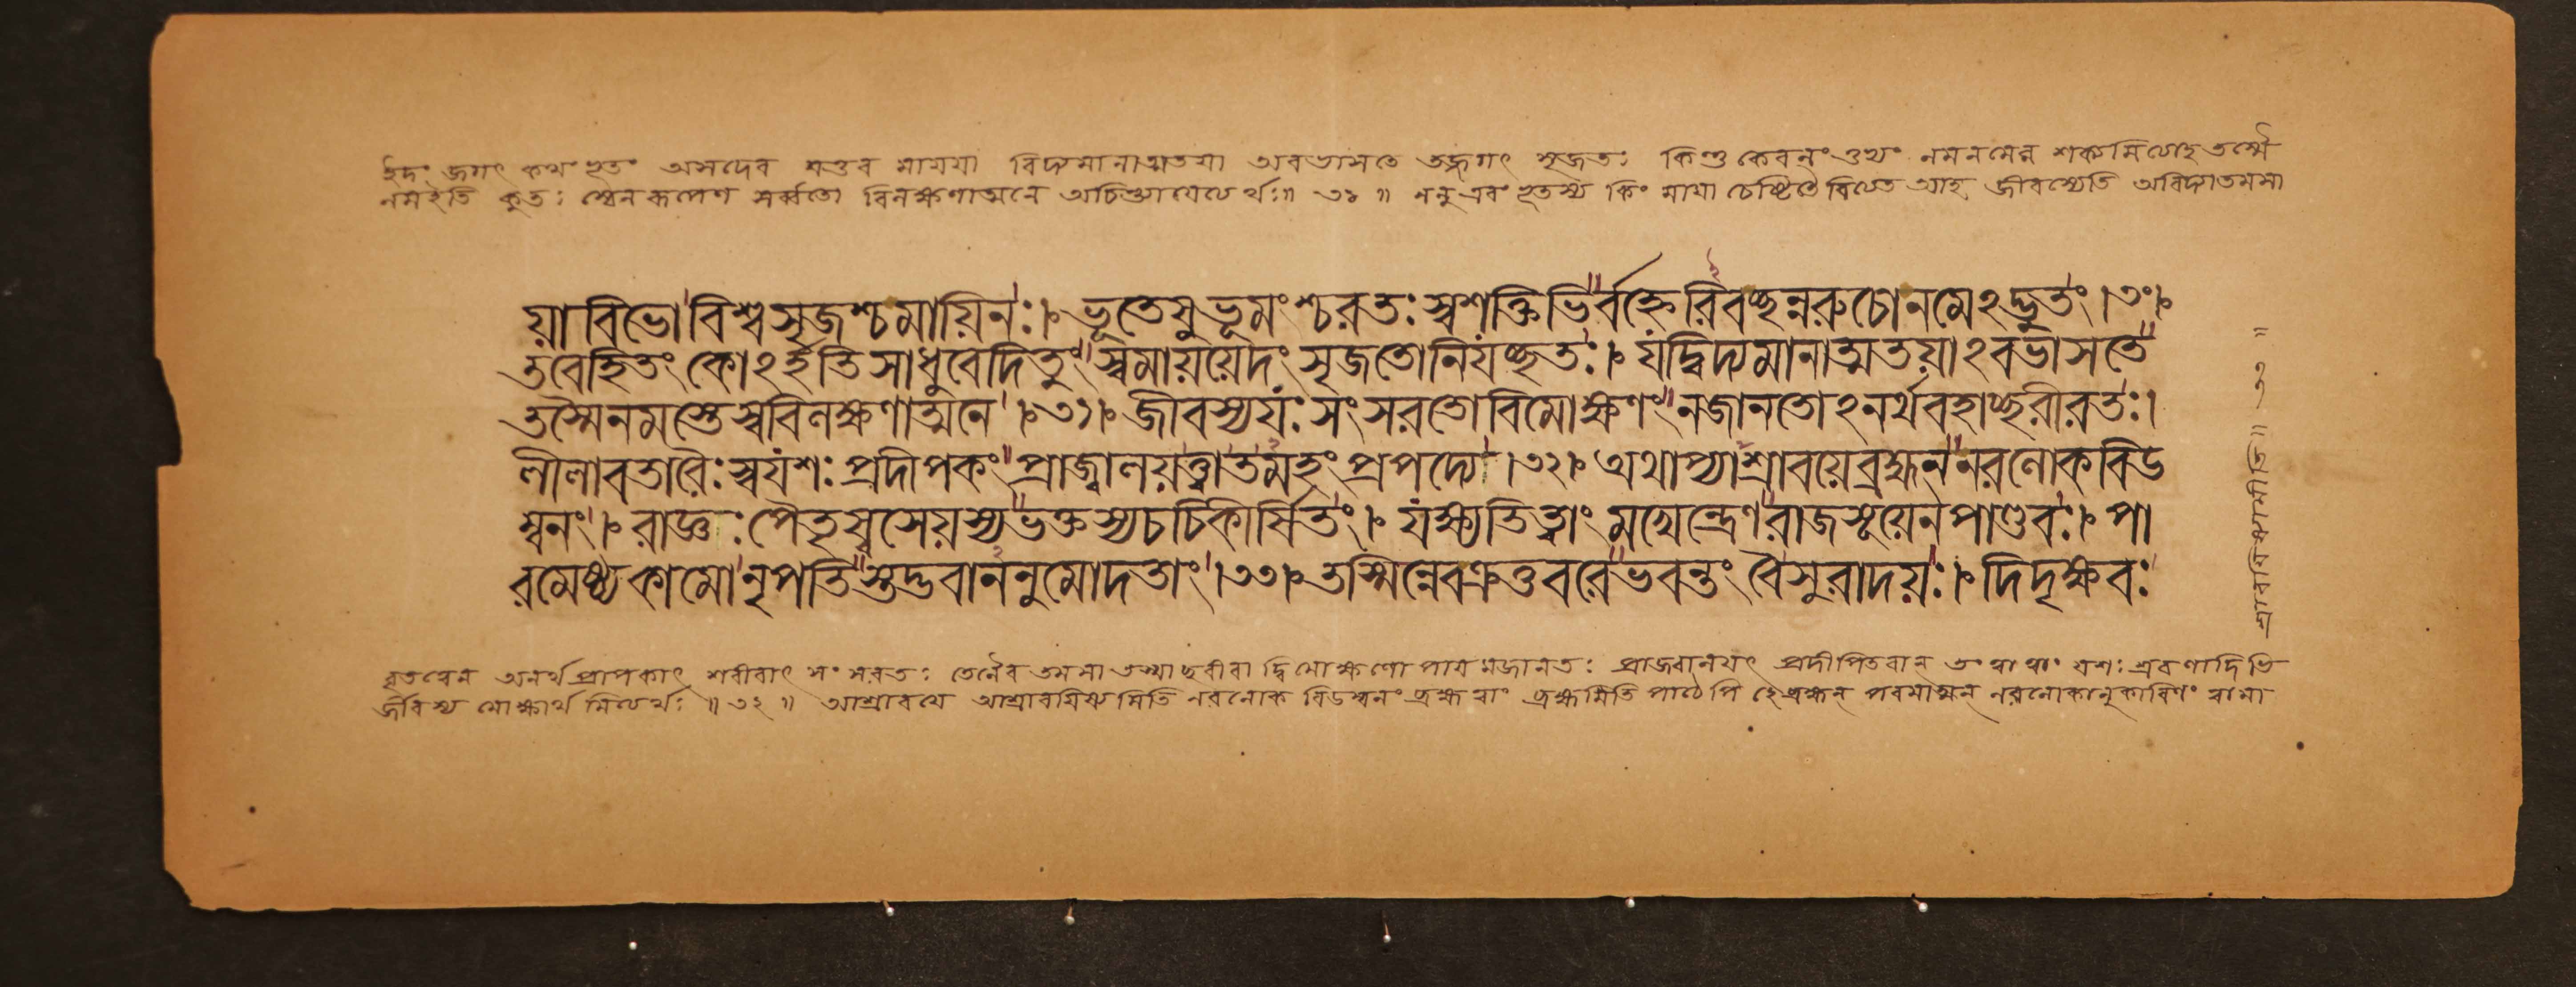 ইদং জগৎ কথং ভূতং অসদেব যত্তব মায়য়া বিদ্যমানাত্মতয়া অবভাসতে তজ্জগৎ সৃজতঃ কিন্তু কেবলং তুভ্যং নমনমেব শক্যমিত্যাহ তস্মৈ
নমইতি কুতঃ স্বেন রূপেণ সর্ব্বতো বিলক্ষণাত্মনে অচিন্ত্যায়েত্যর্থঃ॥ ৩১ ॥ ননু এবং ভূতস্য কিং মায়া চেষ্টিতৈরিত্যত আহ জীবস্যেতি অবিদ্যাতমসা
য়া বিভো বিশ্বসৃজশ্চমায়িনঃ।৮ ভূতেষুভূমংশ্চরতঃস্বশক্তিভির্বহ্নেরিবচ্ছন্নরুচোনমেঽদ্ভুতং।৩০।৮
তবেহিতং কোঽর্হতিসাধুবেদিতুং স্বমায়য়েদং সৃজতোনিযচ্ছতঃ।৮ যদ্বিদ্যমানাত্মতয়াঽবভাসতে
তস্মৈনমস্তেস্ববিলক্ষণাত্মনে।৮৩১।৮ জীবস্যযঃ সংসরতোবিমোক্ষণং নজানতোঽনর্থবহাচ্ছরীরতঃ।
লীলাবতারৈঃ স্বযশঃ প্রদীপকং প্রাজ্বালয়ত্ত্বাতমহং প্রপদ্যে।৩২।৮ অথাপ্যাশ্রাবয়েব্রহ্মন্ নরলোকবিড
ম্বনং।৮ রাজ্ঞঃ পৈতৃষ্বসেয়স্যভক্তস্যচচিকীর্ষিতং।৮ যক্ষ্যতিত্বাং মখেন্দ্রেণরাজসূয়েনপাণ্ডবঃ।৮ পা
রমেষ্ঠ্যকামোনৃপতিস্তদ্ভবাননুমোদতাং।৩৩।৮ তস্মিন্দেবক্রতুবরেভবন্তং বৈসুরাদয়ঃ।৮ দিদৃক্ষবঃ
বৃতত্বেন অনর্থপ্রাপকাৎ শরীরাৎ সংসরতঃ তেনৈব তমসা তস্মাচ্ছরীরাদ্বিমোক্ষণোপায়মজানতঃ প্রাজ্বালয়ৎ প্রদীপিতবান্ তং ত্বা ত্বাং যশঃ শ্রবণাদিভি
র্জীবস্য মোক্ষার্থমিত্যর্থঃ ॥৩২॥ আশ্রাবয়ে আশ্রাবয়িষ্যামিতি নরলোক বিডম্বনং ব্রহ্ম ত্বাং ব্রহ্মন্নিতি পাঠেপি হে ব্রহ্মন্ পরমাত্মন্ নরলোকানুকারিণং ত্বামা